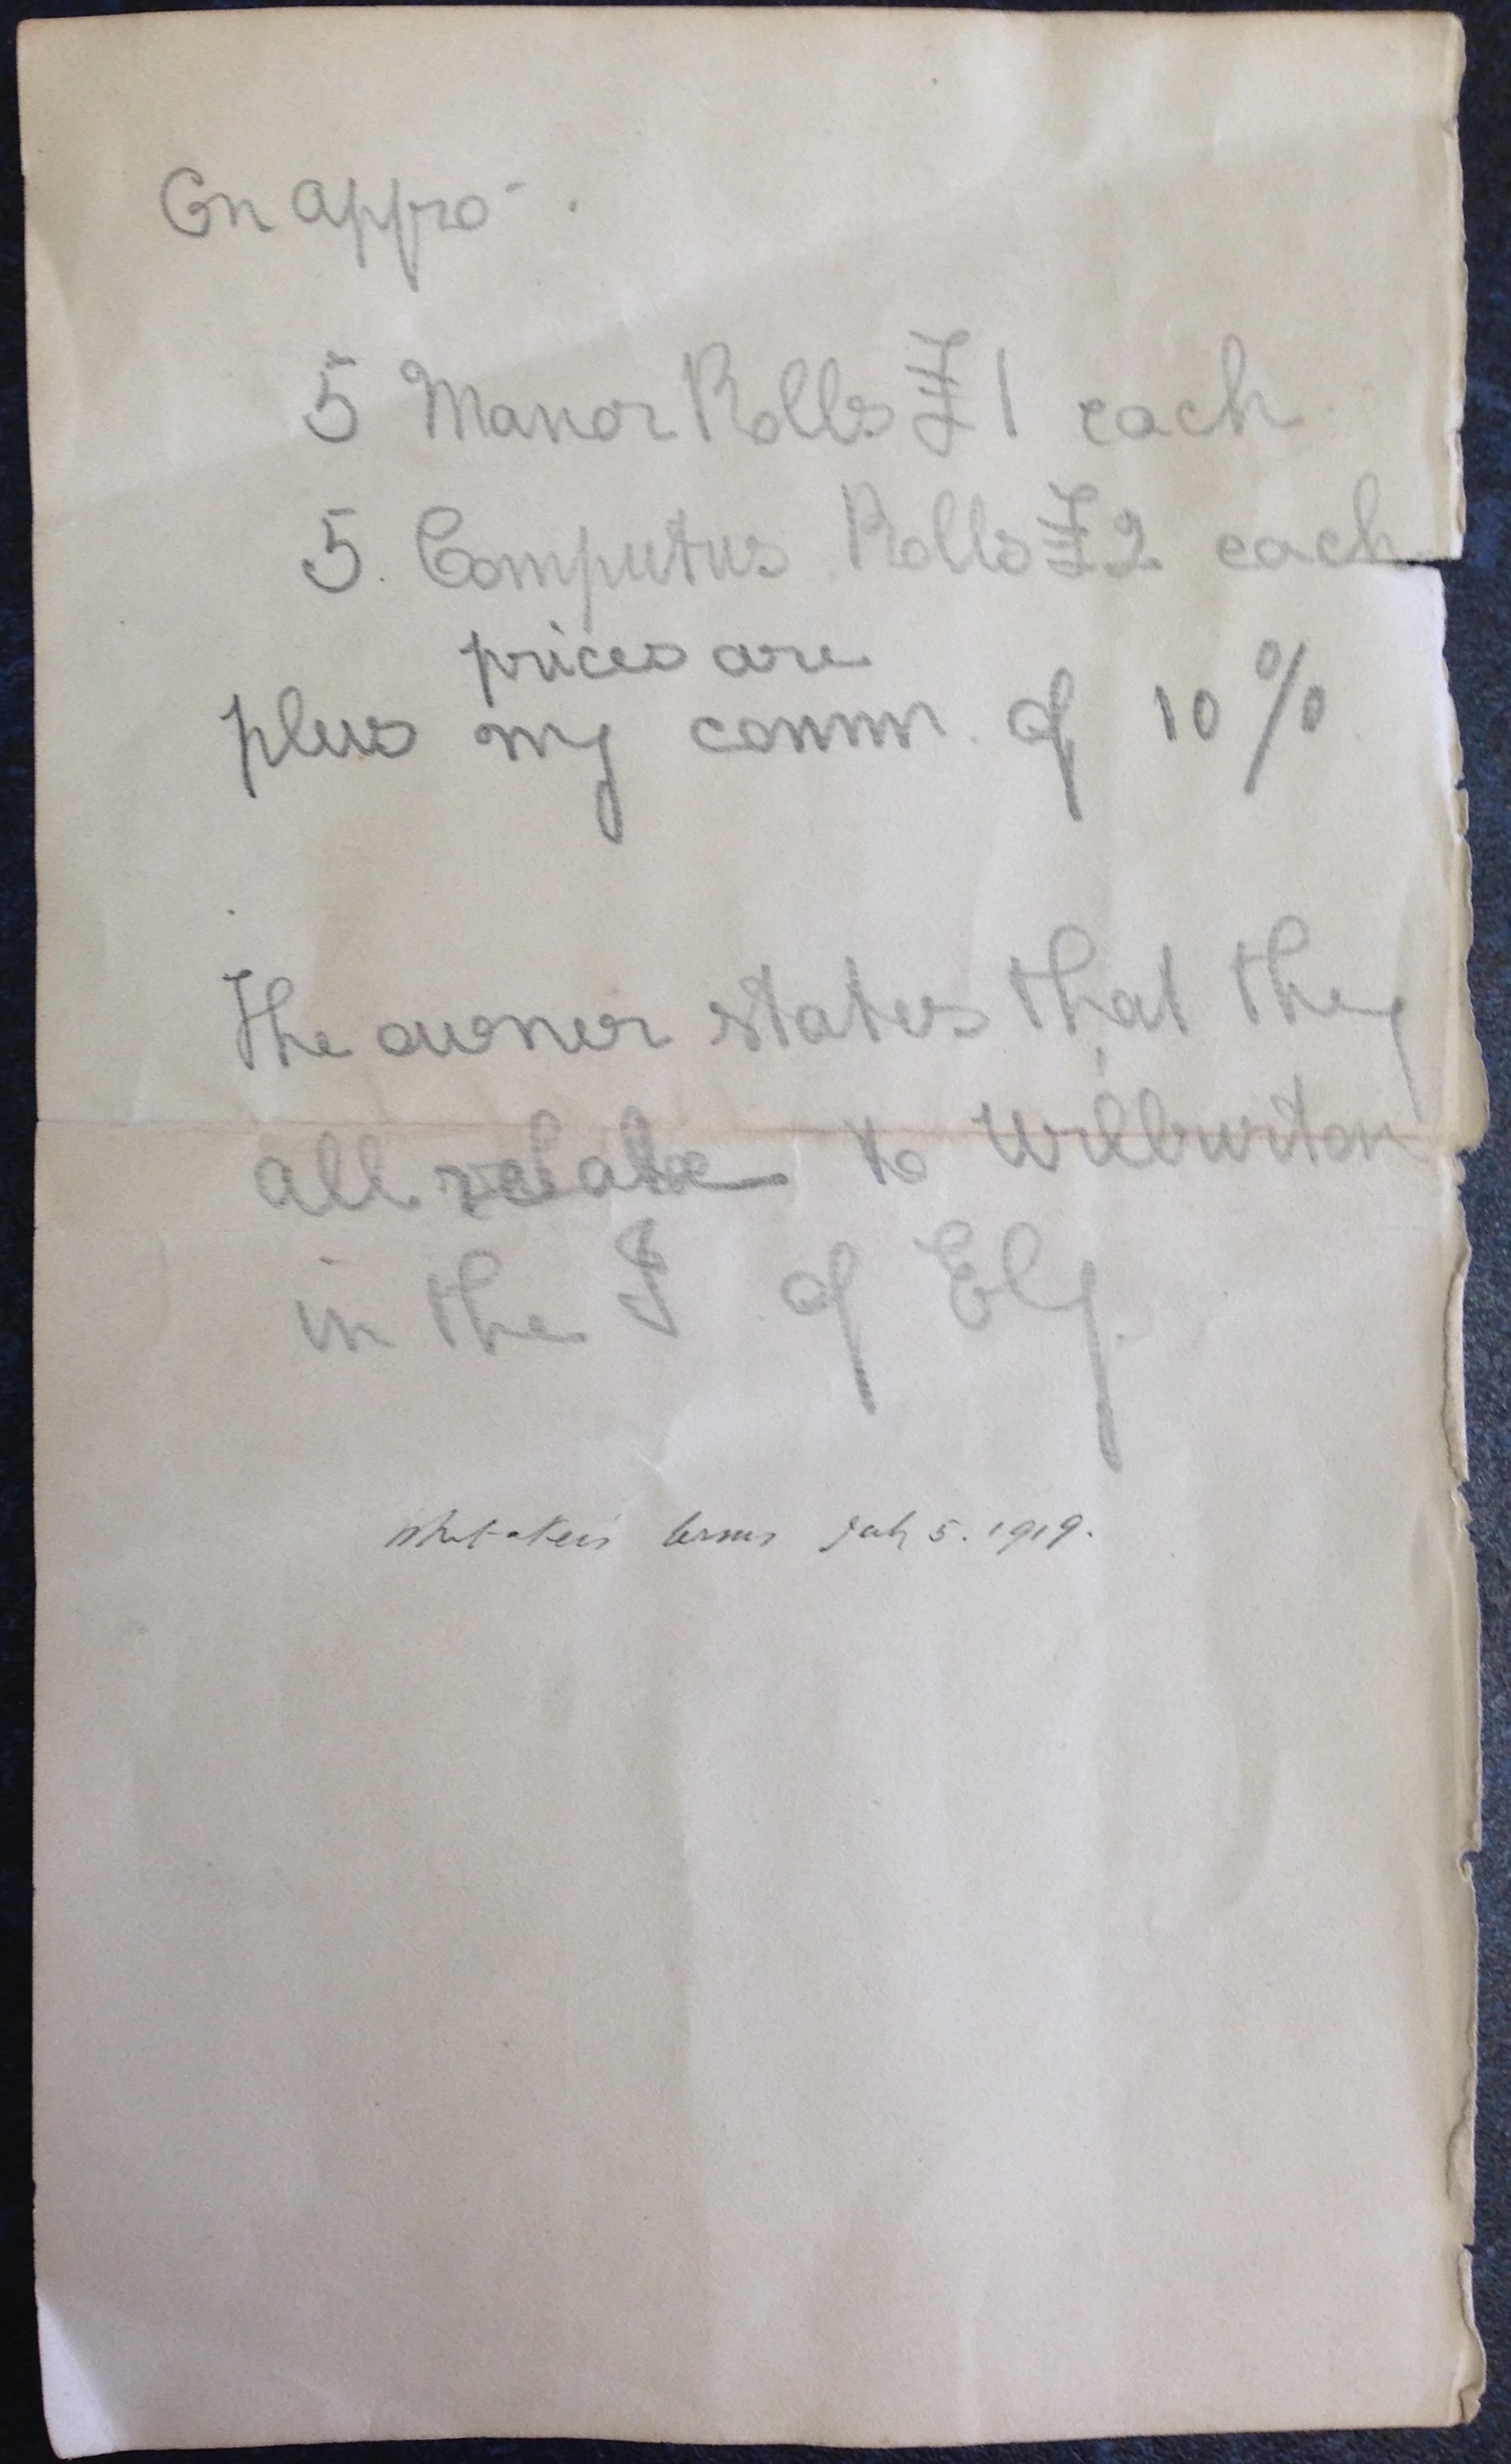 On appro-.
5 Manor Rolls £1 each
5. Computus Rolls £2 each
prices are
plus my commn. of 10%
The owner states that they
all relate to Wilburton
in the I of Ely.
terms July 5. 1919.